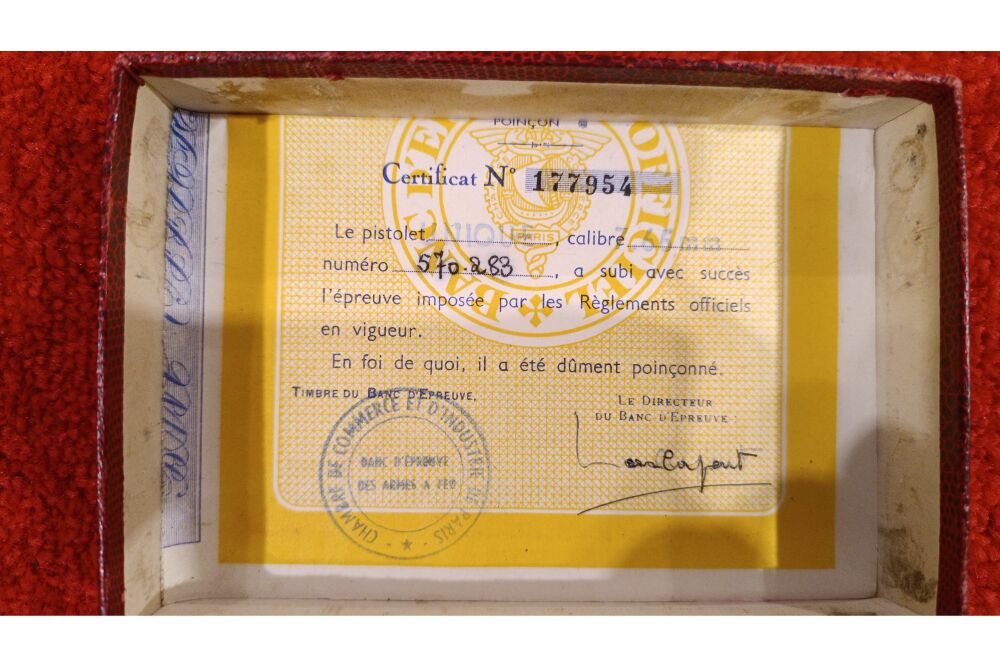 POINÇON
BANC D'EPREUVE OFFICIEL
PARIS
Certificat N° 177954
Le pistolet UNIQUE, calibre 7,65 mm
numéro 570.283, a subi avec succès
l'épreuve imposée par les Règlements officiels
en vigueur.
En foi de quoi, il a été dûment poinçonné.
TIMBRE DU BANC D'EPREUVE,
LE DIRECTEUR
DU BANC D'EPREUVE :
CHAMBRE DE COMMERCE ET D'INDUSTRIE DE PARIS
BANC D'ÉPREUVE
DES ARMES A FEU